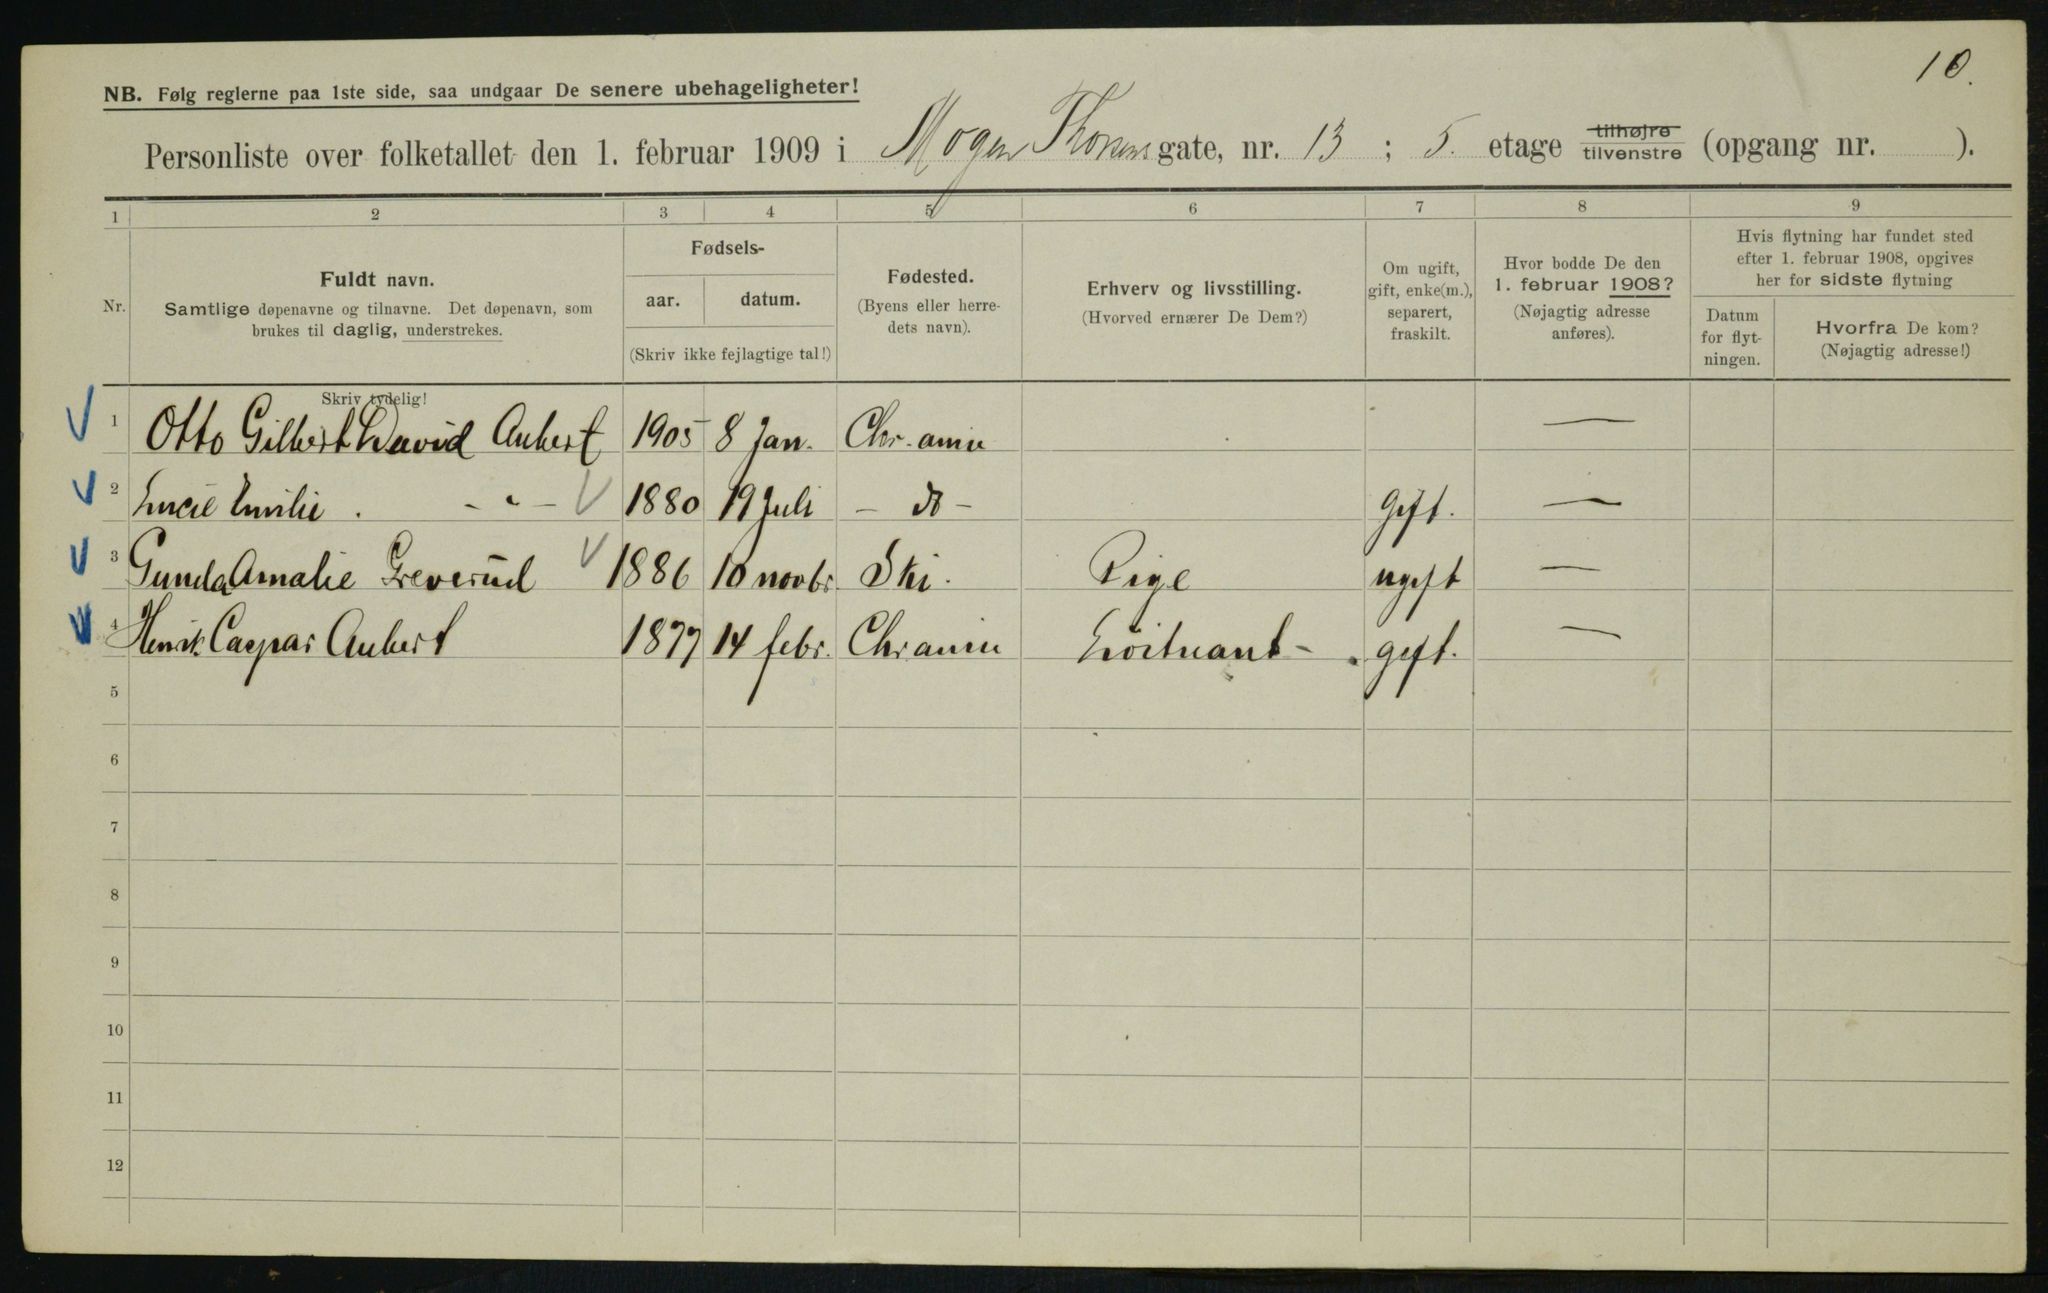 10.
NB. Følg reglerne paa 1ste side, saa undgaar De senere ubehageligheter!
Personliste over folketallet den 1. februar 1909 i Mogen Thorsens gate, nr. 13 ; 5. etage tilhøjre tilvenstre (opgang nr. ).
1 2 3 4 5 6 7 8 9
Nr.
Fuldt navn.
Samtlige døpenavne og tilnavne. Det døpenavn, som
brukes til daglig, understrekes.
Fødsels-
aar. datum.
(Skriv ikke fejlagtige tal!)
Fødested.
(Byens eller herre-
dets navn).
Erhverv og livsstilling.
(Hvorved ernærer De Dem?)
Om ugift,
gift, enke(m.),
separert,
fraskilt.
Hvor bodde De den
1. februar 1908?
(Nøjagtig adresse
anføres).
Hvis flytning har fundet sted
efter 1. februar 1908, opgives
her for sidste flytning
Datum
for flyt-
ningen.
Hvorfra De kom?
(Nøjagtig adresse!)
Skriv tydelig!
1 Otto Gilbert David Aubert 1905 8 Jan. Chr.ania —
2 Lucie Emilie . - " - 1880 19 Juli - do - Gift. —
3 Gunda Amalie Greverud 1886 10 novbr. Ski. Pige ugift —
4 Henrik Caspar Aubert 1877 14 febr. Chrania Løitnant - gift. —
5
6
7
8
9
10
11
12